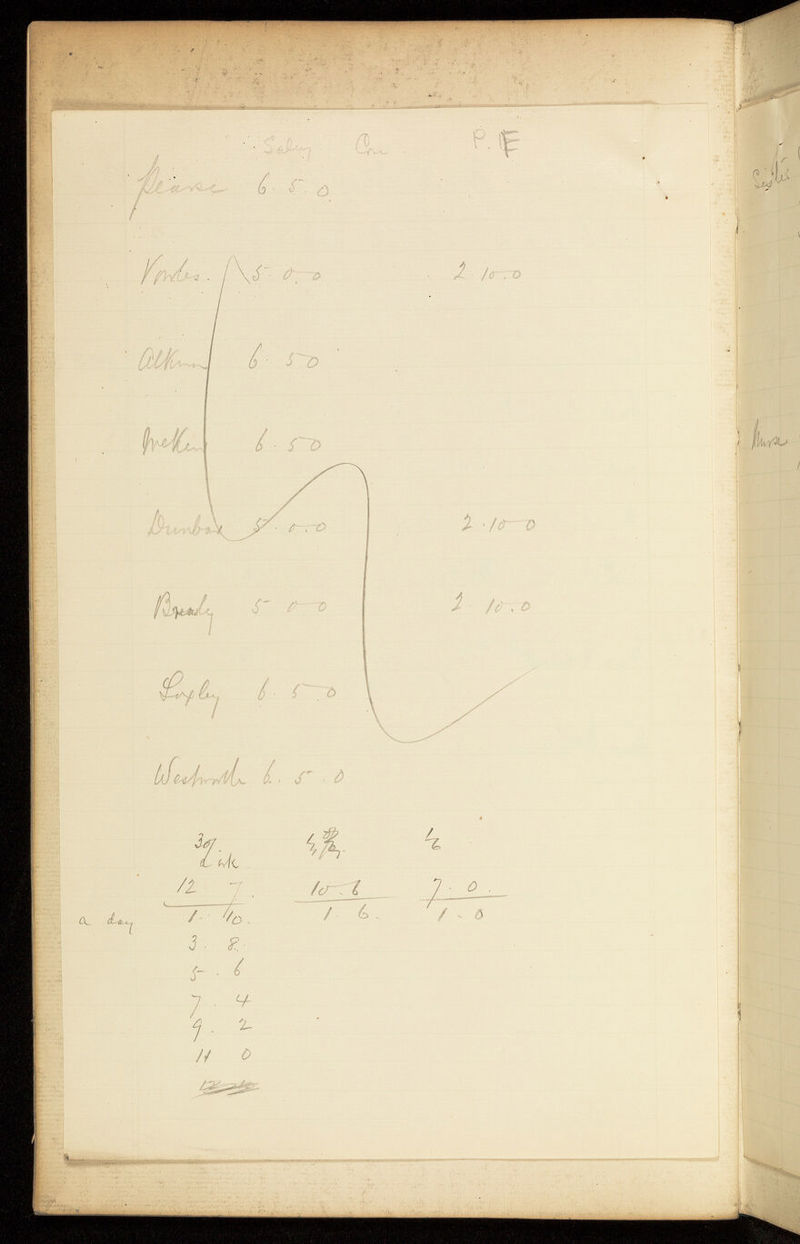 Salary P.E
Pearse 6. 5. 0.
Vowles. 5. 0. 0 2. 10. 0
6. 5 0
6. 5 0
Dunbar 5. 0. 0 2. 10 0
Brealy 5 0 0 2 10. 0
Loxley 6. 5 0
6. 5. 0
12 7. 10. 6 7. 0.
a day 1. 10. 1. 6. 1. 0
3. 8.
5. 6
7. 4
9. 2
11 0
Nurse